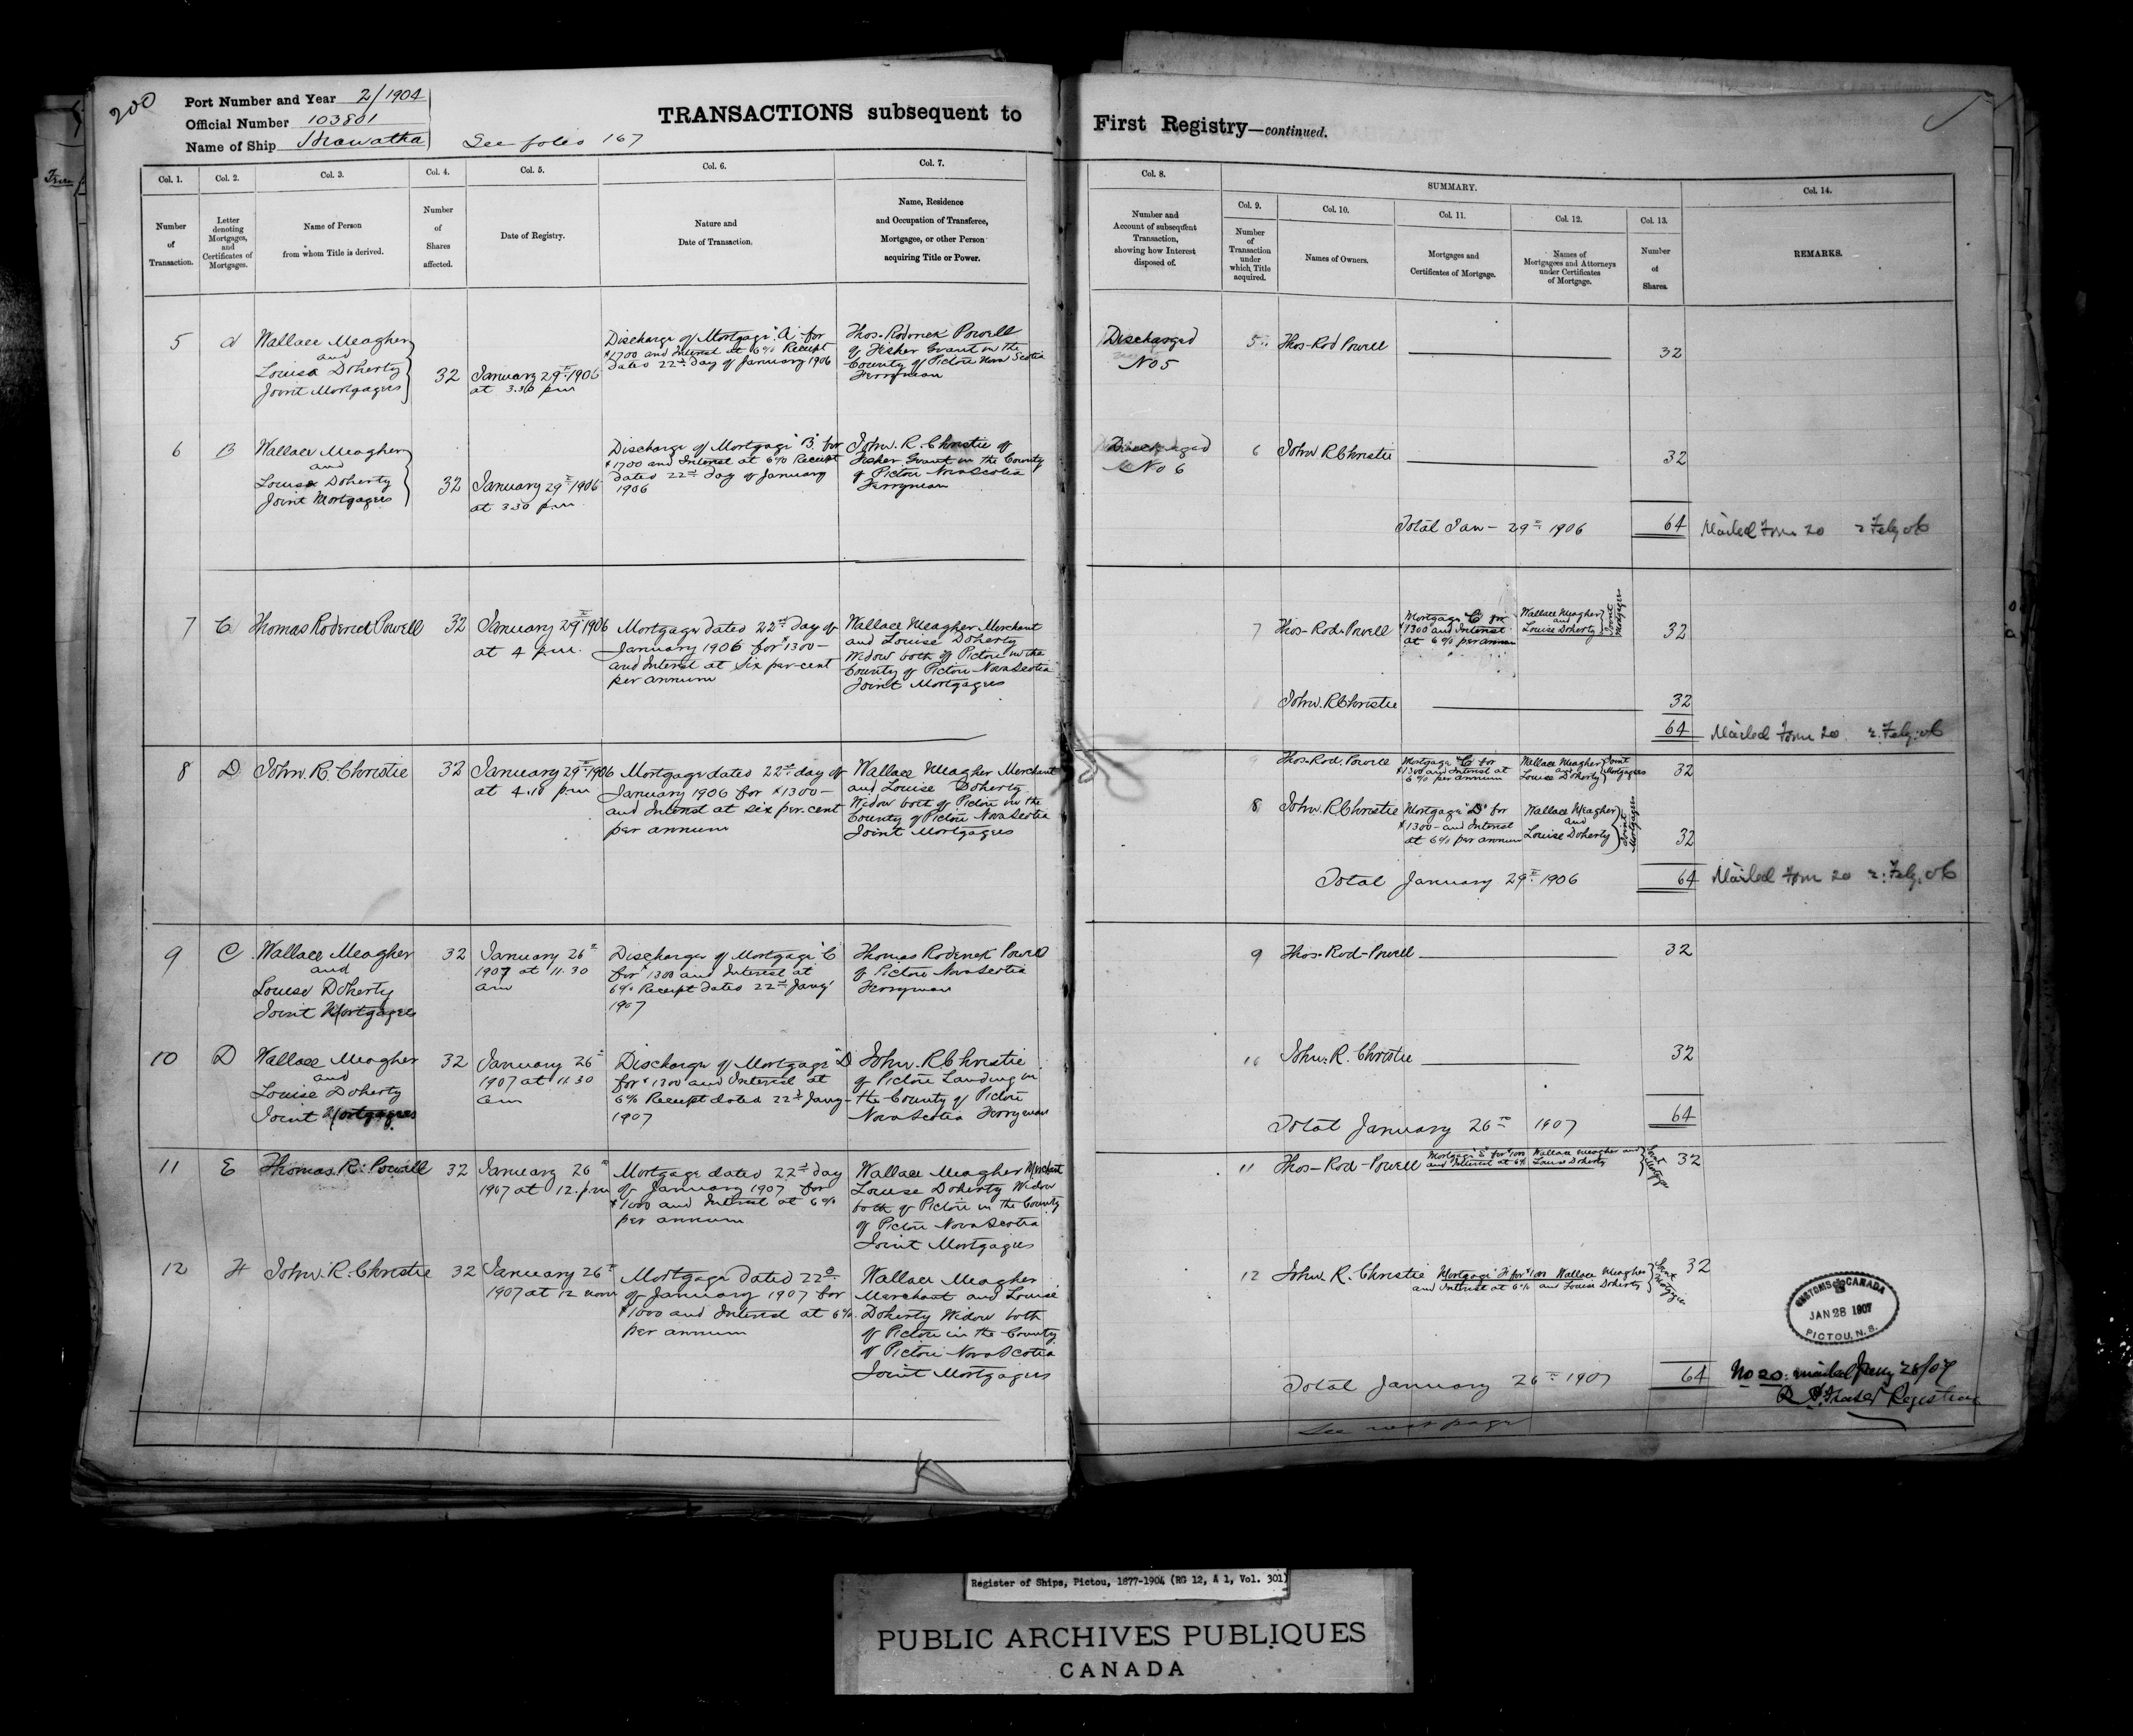 200
Port Number and Year 2/1904
Official Number 103801
Name of Ship Hiawatha
See folio 167
TRANSACTIONS subsequent to
First Registry—continued.
Col. 1.
Number
of
Transaction.
Col. 2.
Letter
denoting
Mortgages,
and
Certificates of
Mortgages.
Col. 3.
Name of Person
from whom Title is derived.
Col. 4.
Number
of
Shares
affected.
Col. 5.
Date of Registry.
Col. 6.
Nature and
Date of Transaction.
Col. 7.
Name, Residence
and Occupation of Transferee,
Mortgagee, or other Person
acquiring Title or Power.
Col. 8.
Number and
Account of subsequent
Transaction,
showing how Interest
disposed of.
SUMMARY.
Col. 9.
Number
of
Transaction
under
which Title
acquired.
Col. 10.
Names of Owners.
Col. 11.
Mortgages and
Certificates of Mortgage.
Col. 12.
Names of
Mortgagees and Attorneys
under Certificates
of Mortgage.
Col. 13.
Number
of
Shares
Col. 14.
REMARKS.
5
Wallace Meagher
and
Louisa Doherty
Joint Mortgagees
32
January 29th 1906
at 3.30 p.m
Discharge of Mortgage "A" for
$1700 and Interest at 6% Receipt
dated 22nd day of January 1906
Thos. Roderick Powell
of Fisher Grant in the
County of Pictou Nova Scotia
Ferryman
Discharged
No 5
5
Thos-Rod Powell
32
6
B
Wallace Meagher
and
Louisa Doherty
Joint Mortgagees
32
January 29th 1906
at 3.30 p.m
Discharge of Mortgage "B" for
$1700 and Interest at 6% Receipt
dated 22nd day of January
1906
John. R. Christie of
Fisher Grant in the County
of Pictou Nova Scotia
Ferryman
Discharged
No 6
6
John R Christie
32
Total Jan- 29th 1906
64
Mailed Form 20 2 Feby. 06
7
C
Thomas Roderick Powell
32
January 29th 1906
at 4 p.m.
Mortgage dated 22nd day of
January 1906 for $1300-
and Interest at six per-cent
per annum
Wallace Meagher Merchant
and Louise Doherty
Widow both of Pictou in the
County of Pictou Nova Scotia
Joint Mortgagees
7
Thos-Rod-Powell
Mortgage "C" for
$1300 and Interest
at 6% per annum
Wallace Meagher
and
Louise Doherty
Joint
Mortgagees
32
John. R Christie
32
64
Mailed Form 20 2. Feby. 06
8
D
John. R. Christie
32
January 29th 1906
at 4.10 p.m
Mortgage dated 22nd day of
January 1906 for $1300-
and Interest at six per.cent
per annum
Wallace Meagher Merchant
and Louise Doherty
Widow both of Pictou in the
County of Pictou Nova Scotia
Joint Mortgagees
Thos-Rod. Powell
Mortgage "C" for
$1300 and Interest at
6% per annum
Wallace Meagher
and
Louise Doherty
Joint
Mortgagees
32
8
John. R Christie
Mortgage "D" for
$1300- and Interest
at 6% per annum
Wallace Meagher
and
Louise Doherty
Joint
Mortgagees
32
Total January 29th 1906
64
Mailed Form 20 2. Feby. 06
9
C
Wallace Meagher
and
Louise Doherty
Joint Mortgagees
32
January 26th
1907 at 11.30
am
Discharge of Mortgage "C
for $1300 and Interest at
6% Receipt dated 22nd Jany
1907
Thomas Roderick Powell
of Pictou Nova Scotia
Ferryman
9
Thos-Rod-Powell
32
10
D
Wallace Meagher
and
Louise Doherty
Joint Mortgagees
32
January 26th
1907 at 11.30
am
Discharge of Mortgage "D
for $1300 and Interest at
6% Receipt dated 22nd Jany-
1907
John. R. Christie
of Pictou Landing in
the County of Pictou
Nova Scotia Ferryman
10
John. R. Christie
32
Total January 26th 1907
64
11
E
Thomas. R. Powell
32
January 26th
1907 at 12. p.m
Mortgage dated 22nd day
of January 1907 for
$1000 and Interest at 6%
per annum
Wallace Meagher Merchant
Louise Doherty Widow
both of Pictou in the County
of Pictou Nova Scotia
Joint Mortgagees
11
Thos-Rod-Powell
Mortgage "E" for $1000
and Interest at 6%
Wallace Meagher and
Louise Doherty
Joint
Mortgagees
32
12
F
John. R. Christie
32
January 26th
1907 at 12 noon
Mortgage dated 22d
of January 1907 for
$1000 and Interest at 6%
per annum
Wallace Meagher
Merchant and Louise
Doherty Widow both
of Pictou in the County
of Pictou Nova Scotia
Joint Mortgagees
12
John. R. Christie
Mortgage F for $1000
and Interest at 6%
Wallace Meagher
and Louise Doherty
Joint
Mortgagees
32
CUSTOMS CANADA
JAN 28 1907
PICTOU, N.S.
Total January 26th 1907
64
No 20: mailed Jany 28/07
Registrar
See next page
Register of Ships, Pictou, 1877-1904 (RG 12, A 1, Vol. 301)
PUBLIC ARCHIVES PUBLIQUES
CANADA